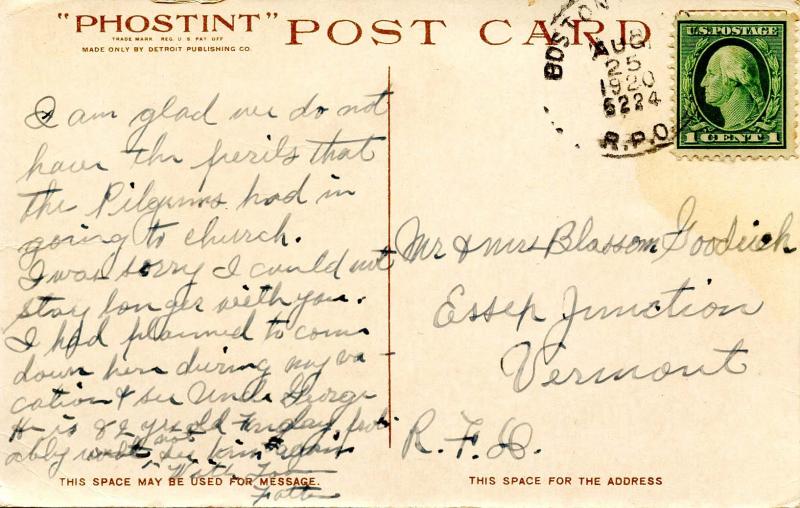 "PHOSTINT" POST CARD
TRADE MARK REG. U S PAT OFF
MADE ONLY BY DETROIT PUBLISHING CO.
BOSTON
AUG
25
1920
5224
R.P.O.
U.S. POSTAGE
1 CENT 1
I am glad we do not
have the perils that
the Pilgrims had in
going to church.
I was sorry I could not
stay longer with you.
I had planned to come
down here during my va-
cation & see Uncle George
He is 82 yrs old Friday, prob-
ably will not see him again
With Love
Mr & Mrs Blossom Goodrich
Essex Junction
Vermont
R.F.D.
THIS SPACE MAY BE USED FOR MESSAGE.
THIS SPACE FOR THE ADDRESS